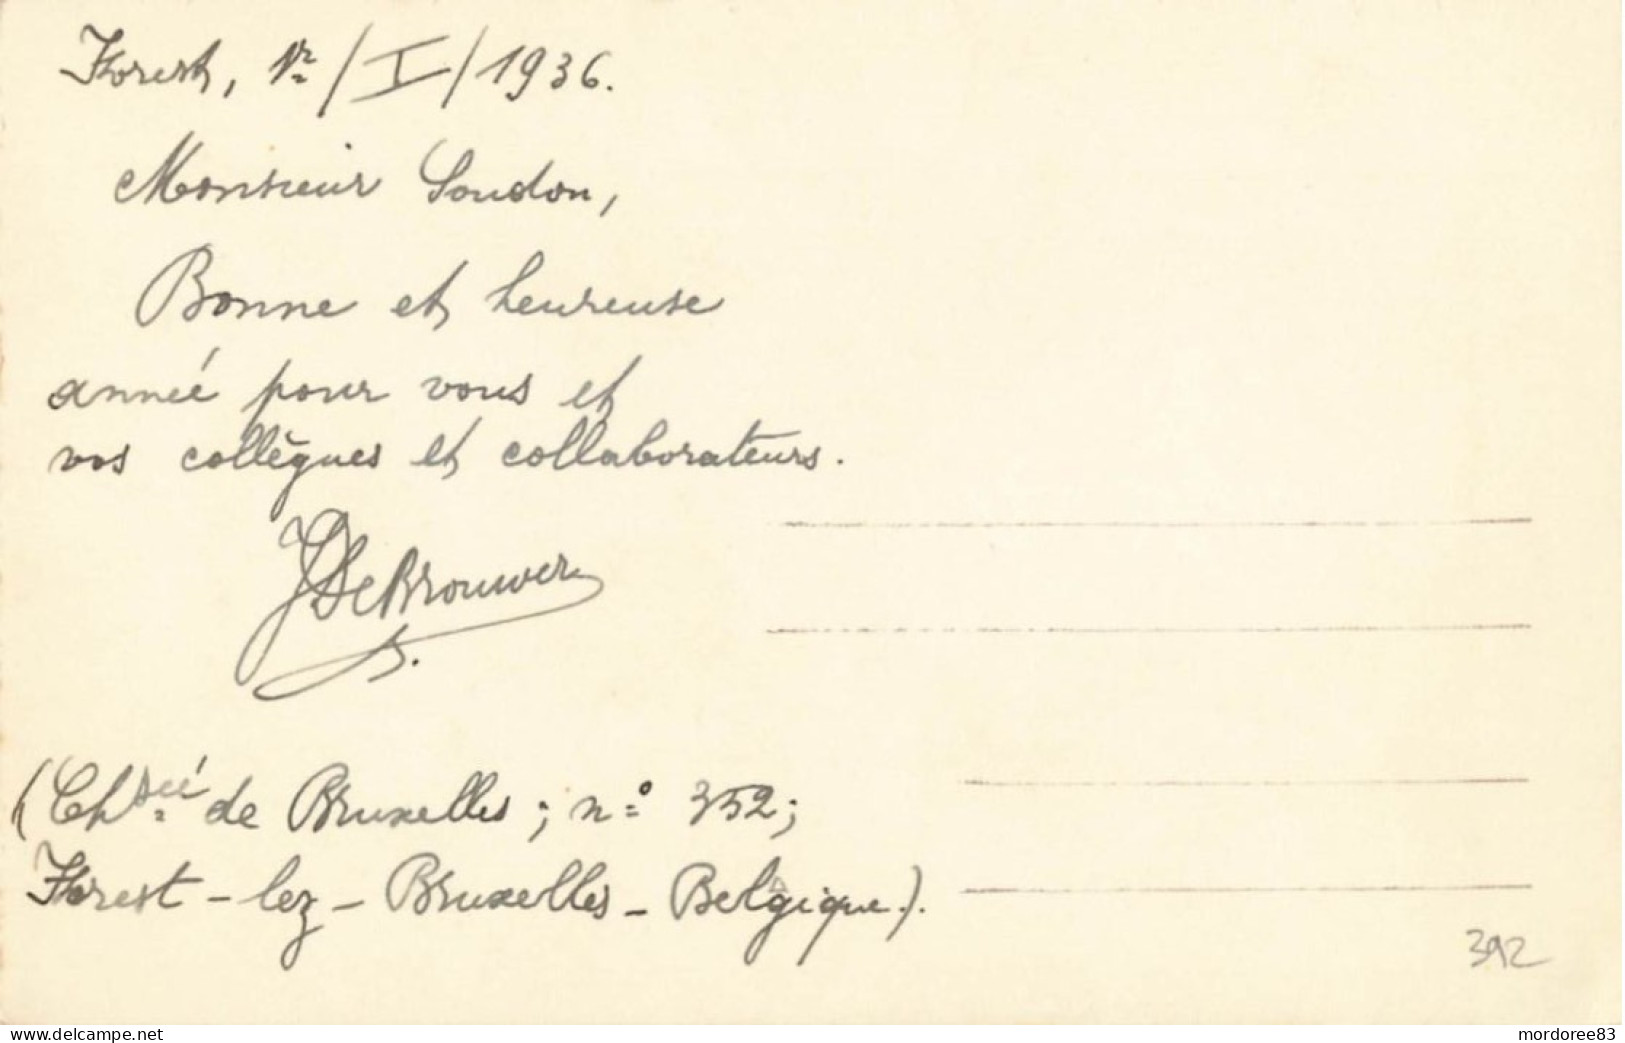 Forest, 1er/I/1936.
Monsieur Soudon,
Bonne et heureuse
année pour vous et
vos collègues et collaborateurs.
J De Brouwer
(Chsée de Bruxelles; n° 352;
Forest-lez-Bruxelles-Belgique.).
392
www.delcampe.net
mordoree83